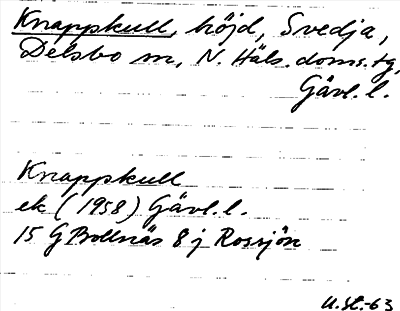 Knappkull, höjd, Svedja,
Delsbo sn, N. Häls. doms.tg,
Gävl. l.
Knappkull
ek (1958) Gävl. l.
15 G Bollnäs 8 j Rossjön
U.St.-63